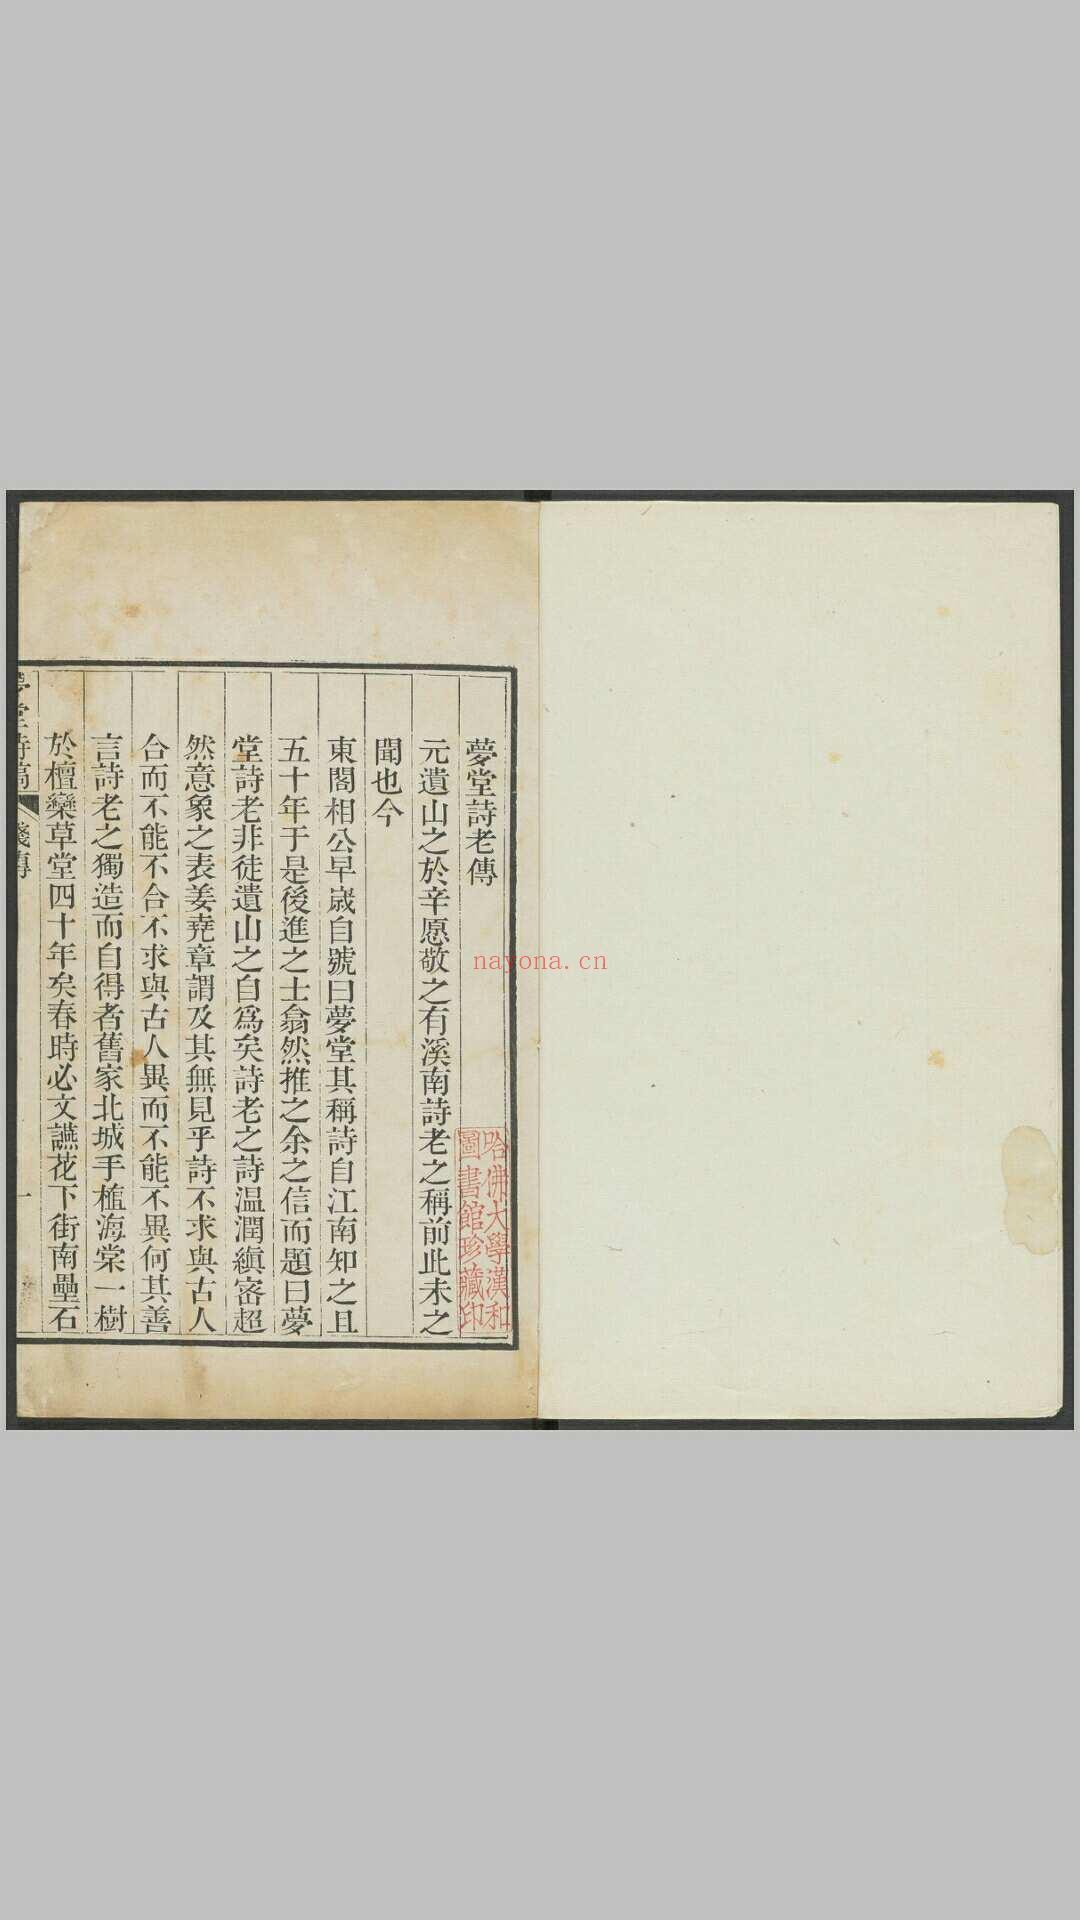 夢堂詩老傳
元遺山之於辛愿敬之有溪南詩老之稱前此未之
聞也今
東閣相公早歲自號曰夢堂其稱詩自江南知之且
五十年于是後進之士翕然推之余之信而題曰夢
堂詩老非徒遺山之自為矣詩老之詩温潤縝密超
然意象之表姜堯章謂及其無見乎詩不求與古人
合而不能不合不求與古人異而不能不異何其善
言詩老之獨造而自得者舊家北城手植海棠一樹
於檀欒草堂四十年矣春時必文讌花下街南壘石
夢堂詩稿
傳
一
哈佛大學漢和
圖書館珍藏印
nayona.cn